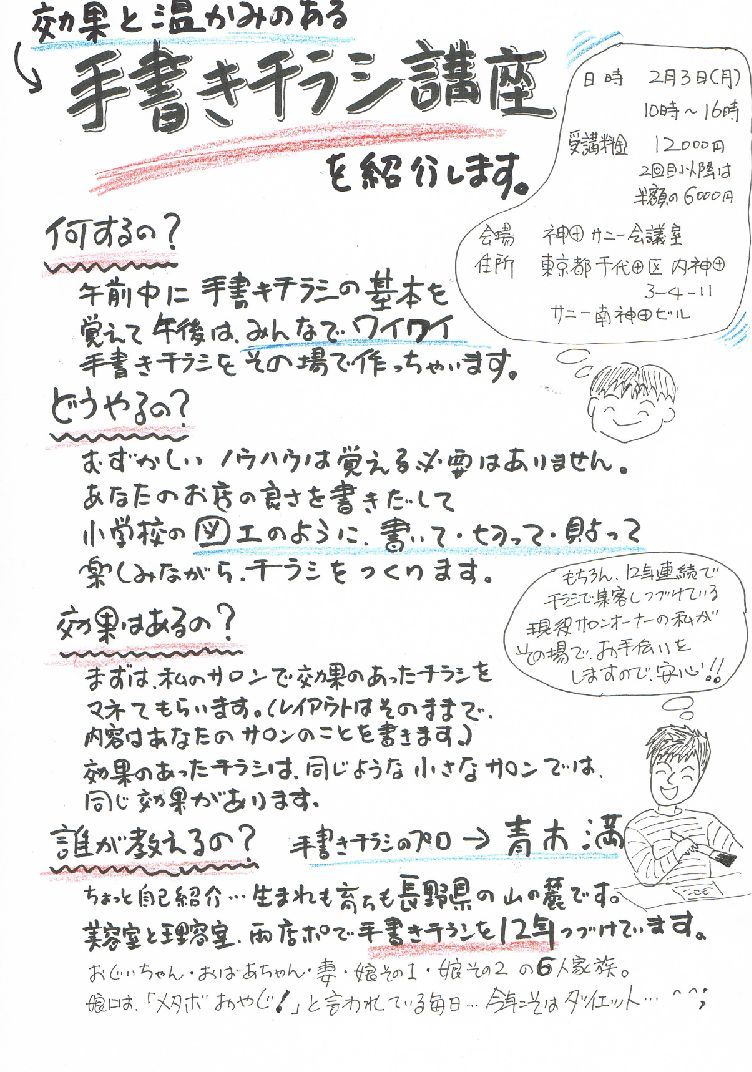 効果と温かみのある
手書きチラシ講座
を紹介します。
日時 2月3日(月)
10時〜16時
受講料金 12000円
2回目以降は
半額の6000円
会場 神田サニー会議室
住所 東京都千代田区内神田
3-4-11
サニー南神田ビル
何するの?
午前中に手書きチラシの基本を
覚えて午後は、みんなでワイワイ
手書きチラシをその場で作っちゃいます。
どうやるの?
むずかしいノウハウは覚える必要はありません。
あなたのお店の良さを書きだして
小学校の図工のように、書いて・切って・貼って
楽しみながら、チラシをつくります。
もちろん、12年連続で
チラシで集客しつづけている
現役サロンオーナーの私が
その場で、お手伝いを
しますので、安心!!
効果はあるの?
まずは、私のサロンで効果のあったチラシを
マネてもらいます。(レイアウトはそのままで、
内容はあなたのサロンのことを書きます。)
効果のあったチラシは、同じような小さなサロンでは、
同じ効果があります。
誰が教えるの? 手書きチラシのプロ→青木満
ちょっと自己紹介…生まれも育ちも長野県の山の麓です。
美容室と理容室、両店ポで手書きチラシを12年つづけています。
おじいちゃん・おばあちゃん・妻・娘その1・娘その2の6人家族。
娘には、「メタボおやじ!」と言われている毎日…今年こそはダイエット…^^;